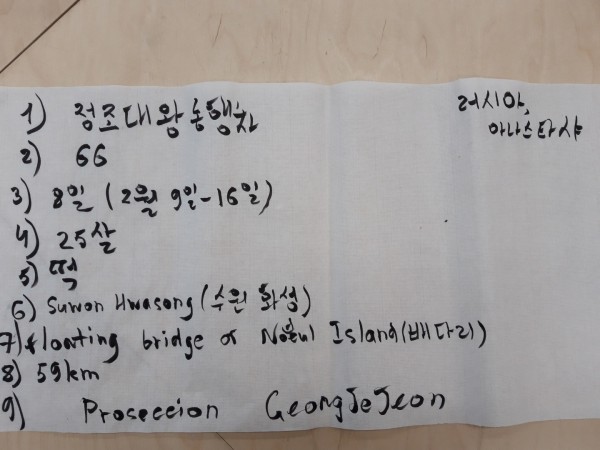 1) 정조대왕능행차
러시아,
아나스타샤
2) 66
3) 8일 (2월 9일-16일)
4) 25살
5) 떡
6) Suwon Hwasong (수원 화성)
7) floating bridge Island (배다리)
8) 59km
9) Proseccion GeongJeJeon